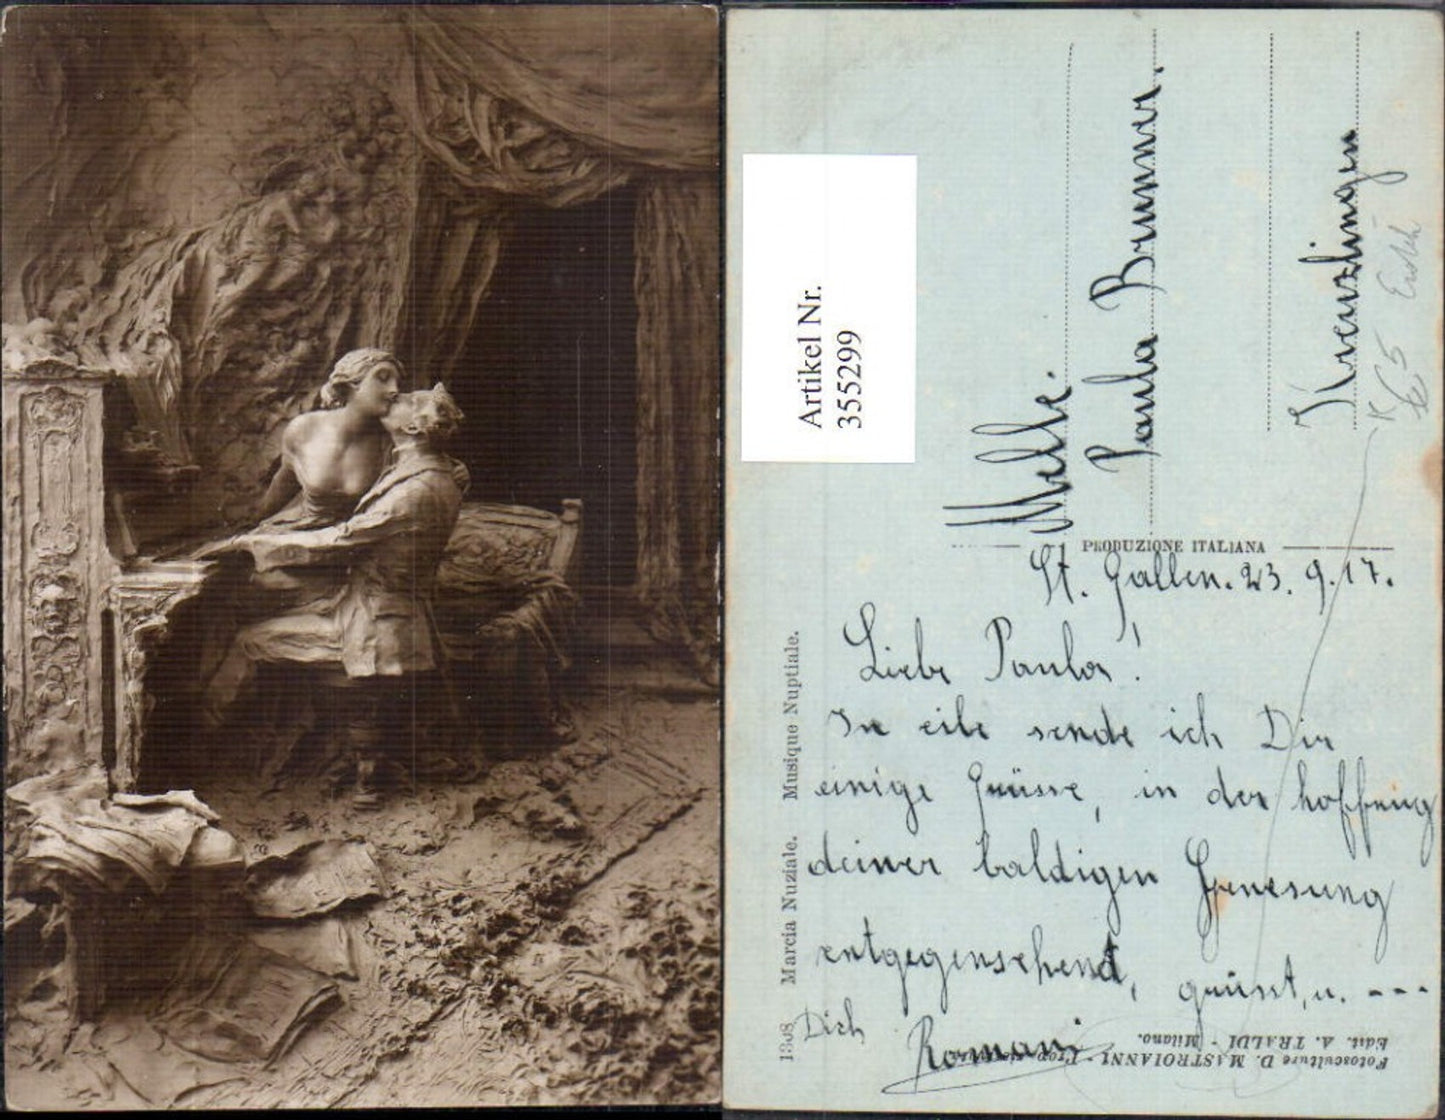 Artikel Nr.
355299
Melle.
Paula Brunner.
Kreuzlingen
PRODUZIONE ITALIANA
St. Gallen. 23. 9. 17.
Liebe Paula!
In eile sende ich Dir
einige Grüsse, in der hoffnung
deiner baldigen Genesung
entgegensehend, grüsst, u. ---
Dich Romani
1308 Marcia Nuziale. Musique Nuptiale.
Fotosculture D. MASTROIANNI - Prop.
Edit. A. TRALDI - Milano.